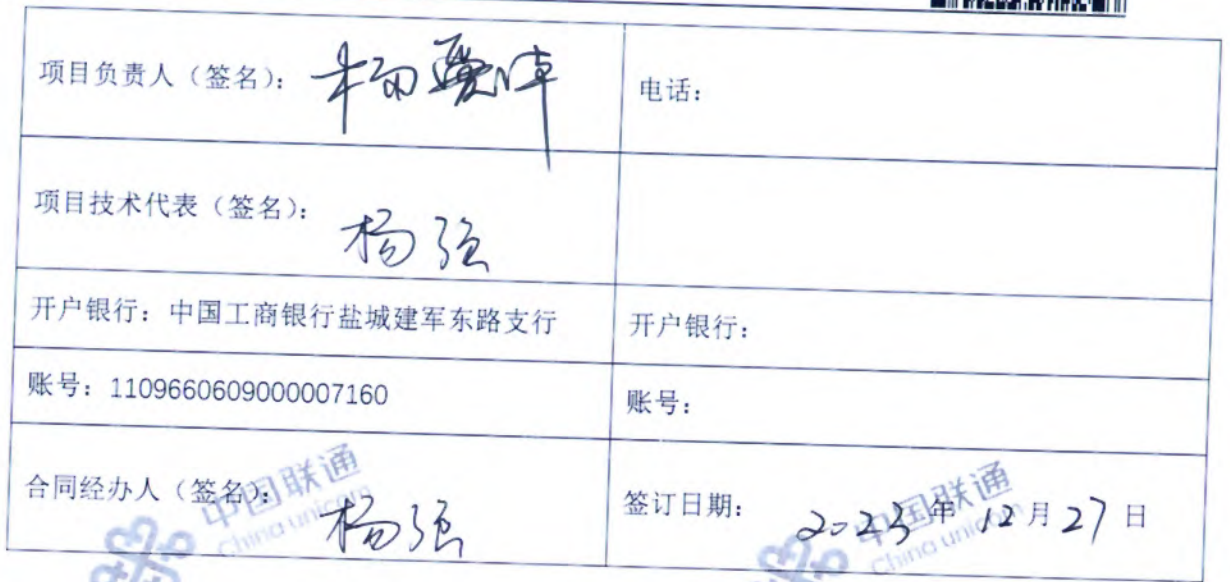 项目负责人（签名）： 杨
电话：
项目技术代表（签名）： 杨强
开户银行：中国工商银行盐城建军东路支行
开户银行：
账号：1109660609000007160
账号：
合同经办人（签名）： 杨强
签订日期： 2023年12月27日
中国联通
China unicom
中国联通
China unicom